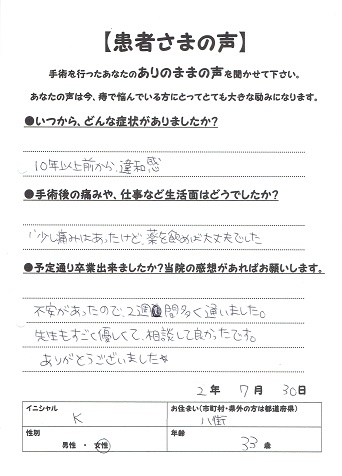 【患者さまの声】
手術を行ったあなたのありのままの声を聞かせて下さい。
あなたの声は今、痔で悩んでいる方にとってとても大きな励みになります。
●いつから、どんな症状がありましたか?
10年以上前から、違和感
●手術後の痛みや、仕事など生活面はどうでしたか?
少し痛みはあったけど、薬を飲めば大丈夫でした
●予定通り卒業出来ましたか?当院の感想があればお願いします。
不安があったので、2週間多く通いました。
先生もすごく優しくて、相談して良かったです。
ありがとうございました
2年 7月 30日
イニシャル お住まい(市町村・県外の方は都道府県)
K 八街
性別 年齢
男性 ・ 女性 33歳